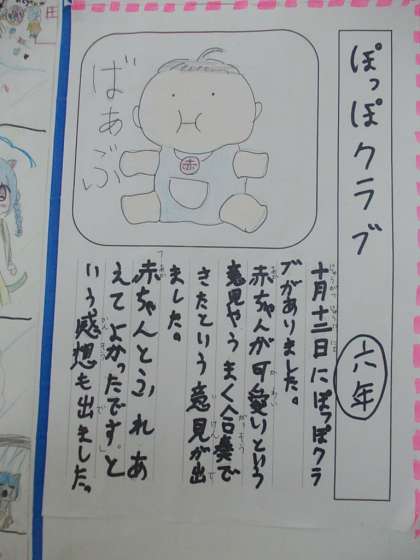 ぽっぽクラブ 六年
ばあぶ
赤
十月十二日にぽっぽクラ
ブがありました。
赤ちゃんが可愛いという
意見やうまく合奏で
きたという意見が出
ました。
「赤ちゃんとふれあ
えてよかったです。」と
いう感想も出ました。